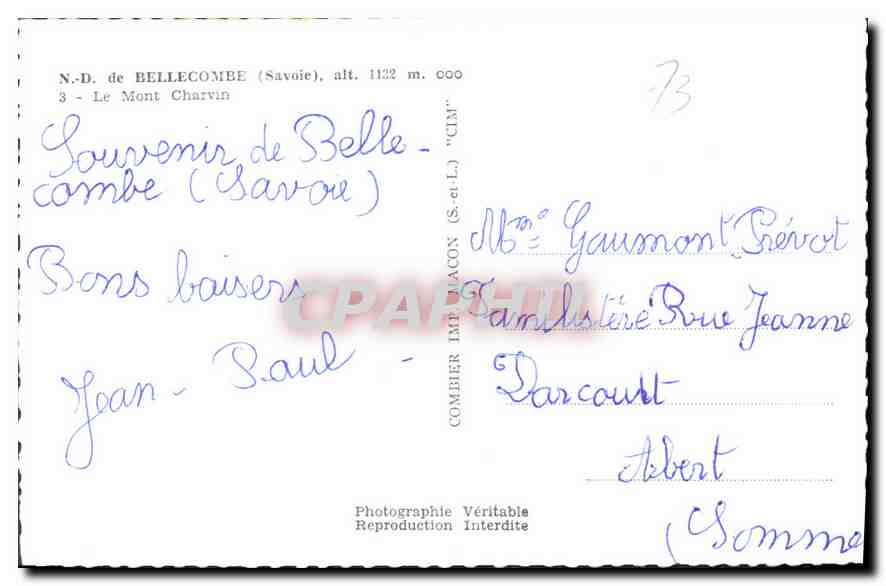 N.-D. de BELLECOMBE (Savoie), alt. 1132 m. ooo
3 - Le Mont Charvin
73
Souvenir de Belle-
combe (Savoie)
Bons baisers
Jean-Paul -
COMBIER IMP. MACON (S.-et-L.) "CIM"
Mme Gaumont Prévot
Familistère Rue Jeanne
Darcourt
Albert
(Somme
Photographie Véritable
Reproduction Interdite
CPAPHIL